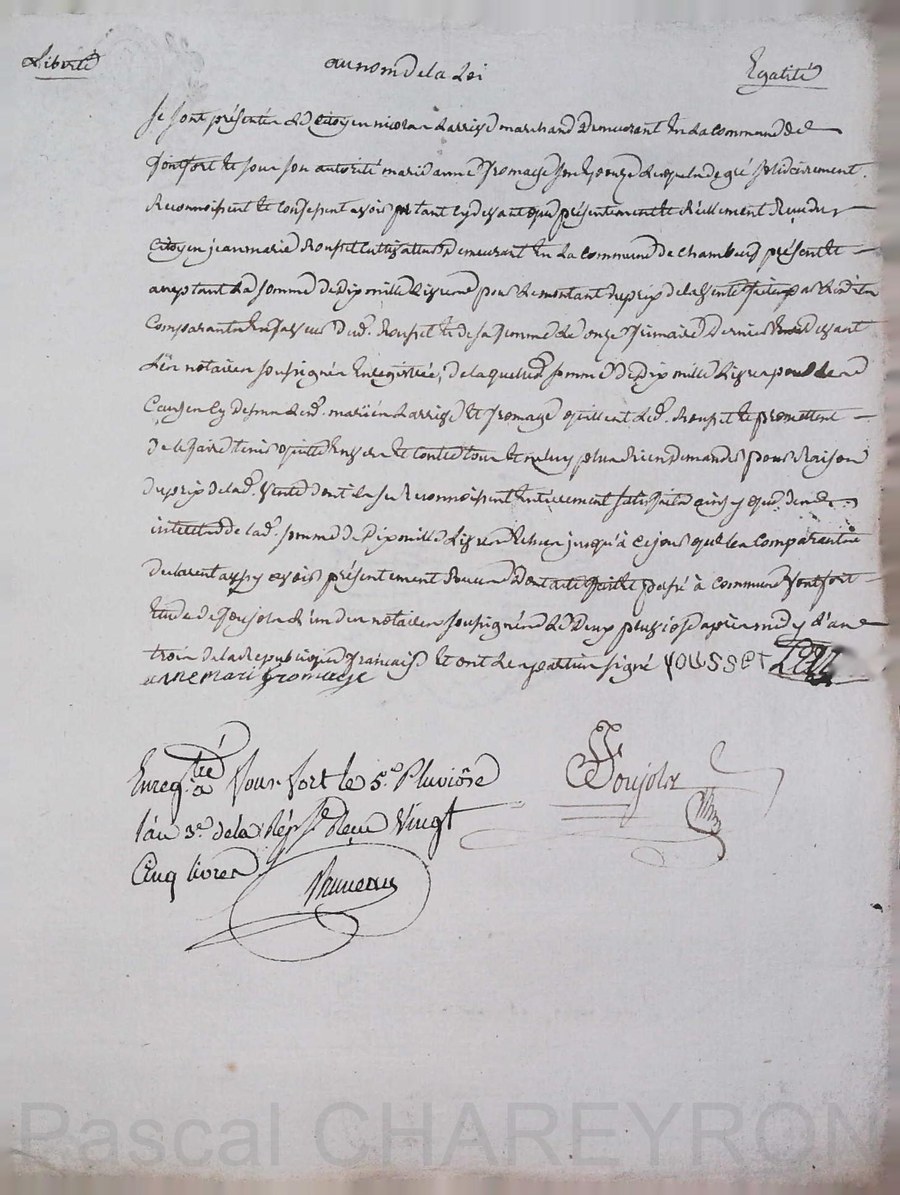 Liberté au nom de la Loi Egalité
se sont présentés le Citoyen nicolas Larrige marchand Demeurant En La commune de
fontfort Et sous son autorité marie anne fromage son Epouse Lesquels de gré solidairement
Reconnoissent Et Confessent avoir cy devant que présentement Et Réellement Reçu du
Citoyen jean marie Rousset cultivateur Demeurant En La Commune de chambeuf présent Et
acceptant La somme De Dix mille Livres pour Le montant du prix de la vente
Comparants En faveur du d. Rousset Et de sa femme Le onze frimaire Dernier devant
Les notaires soussignés Enregistrée, De laquelle somme De Dix mille Livres
Led. Larrige Et fromage quittent Led. Rousset Et promettent
De le faire tenir quitte Envers Et contre tous Et ne luy plus Rien Demander pour Raison
Du prix de lad. vente dont ils se Reconnoissent Entierement satisfaits ainsy que des
intérêts de lad. somme De Dix mille Livres jusqu'à ce jour que les Comparants
Declarent aussy avoir présentement Reçus Dont acte fait Et passé à Commune fontfort
Etude de Goujolx l'un des notaires soussignés Le Deux pluviose après midy L'an
trois de la Republique française Et ont Les parties signé rousset
anne mari fromage
Enreg.tré à fontfort le 5.e Pluviôse Goujolx
l'an 3.e de la Rép. f.se Reçu Vingt
Cinq livres
Bruneau
Pascal CHAREYRON